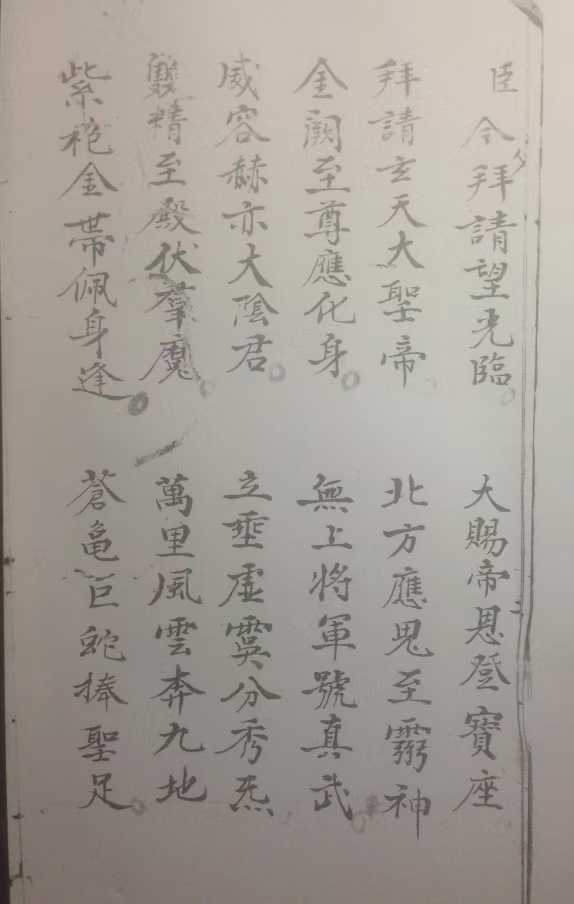 臣今拜請望光臨 大賜帝恩登寶座
拜請玄天大聖帝 北方應鬼至靈神
金闕至尊應化身 無上將軍號真武
威容赫亦大陰君 立垂虛霊分秀炁
雙精至殿伏羣魔 萬里風雲奔九地
紫袍金帶佩身逢 蒼龜巨蛇捧聖足